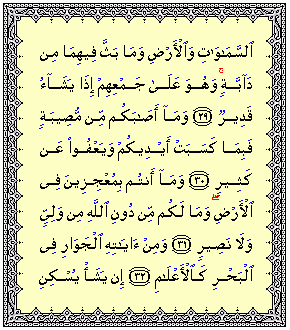 ٱلسَّمَٰوَٰتِ وَٱلْأَرْضِ وَمَا بَثَّ فِيهِمَا مِن
دَآبَّةٍ ۚ وَهُوَ عَلَىٰ جَمْعِهِمْ إِذَا يَشَآءُ
قَدِيرٌ ﴿٢٩﴾ وَمَآ أَصَٰبَكُم مِّن مُّصِيبَةٍ
فَبِمَا كَسَبَتْ أَيْدِيكُمْ وَيَعْفُوا۟ عَن
كَثِيرٍ ﴿٣٠﴾ وَمَآ أَنتُم بِمُعْجِزِينَ فِى
ٱلْأَرْضِ ۖ وَمَا لَكُم مِّن دُونِ ٱللَّهِ مِن وَلِىٍّ
وَلَا نَصِيرٍ ﴿٣١﴾ وَمِنْ ءَايَٰتِهِ ٱلْجَوَارِ فِى
ٱلْبَحْرِ كَٱلْأَعْلَٰمِ ﴿٣٢﴾ إِن يَشَأْ يُسْكِنِ